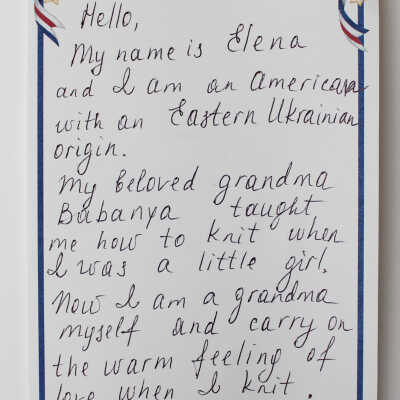 Hello,
My name is Elena
and I am an American
with an Eastern Ukrainian
origin.
My beloved grandma
Babanya taught
me how to knit when
I was a little girl.
Now I am a grandma
myself and carry on
the warm feeling of
love when I knit.